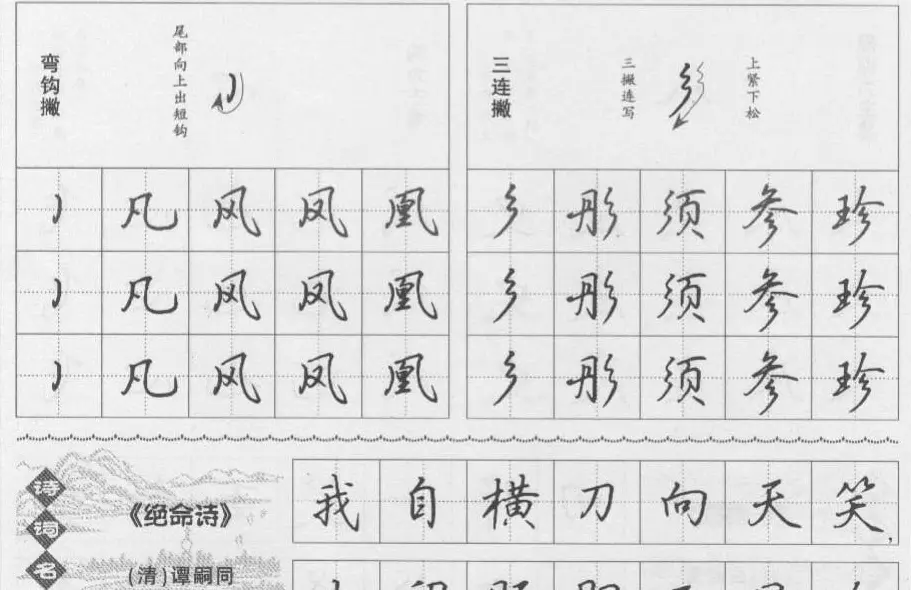 弯钩撇
尾部向上出短钩
三连撇
三撇连写
上紧下松
凡 风 凤 凰
凡 风 凤 凰
凡 风 凤 凰
彡 彤 须 参 珍
彡 彤 须 参 珍
彡 彤 须 参 珍
诗词名
《绝命诗》
(清)谭嗣同
我自横刀向天笑,